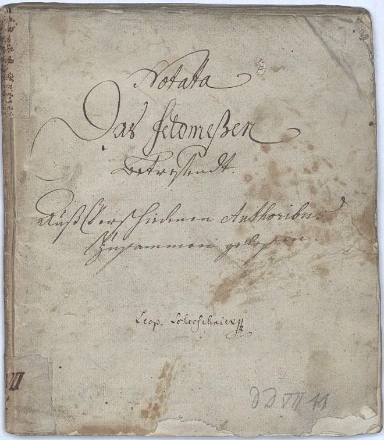 Notata
Das Feldmeßen
Betreffendt.
Auß Verschiedenen Authoribus
Zusammen gelesen.
Leop.
VII
DD VII 11